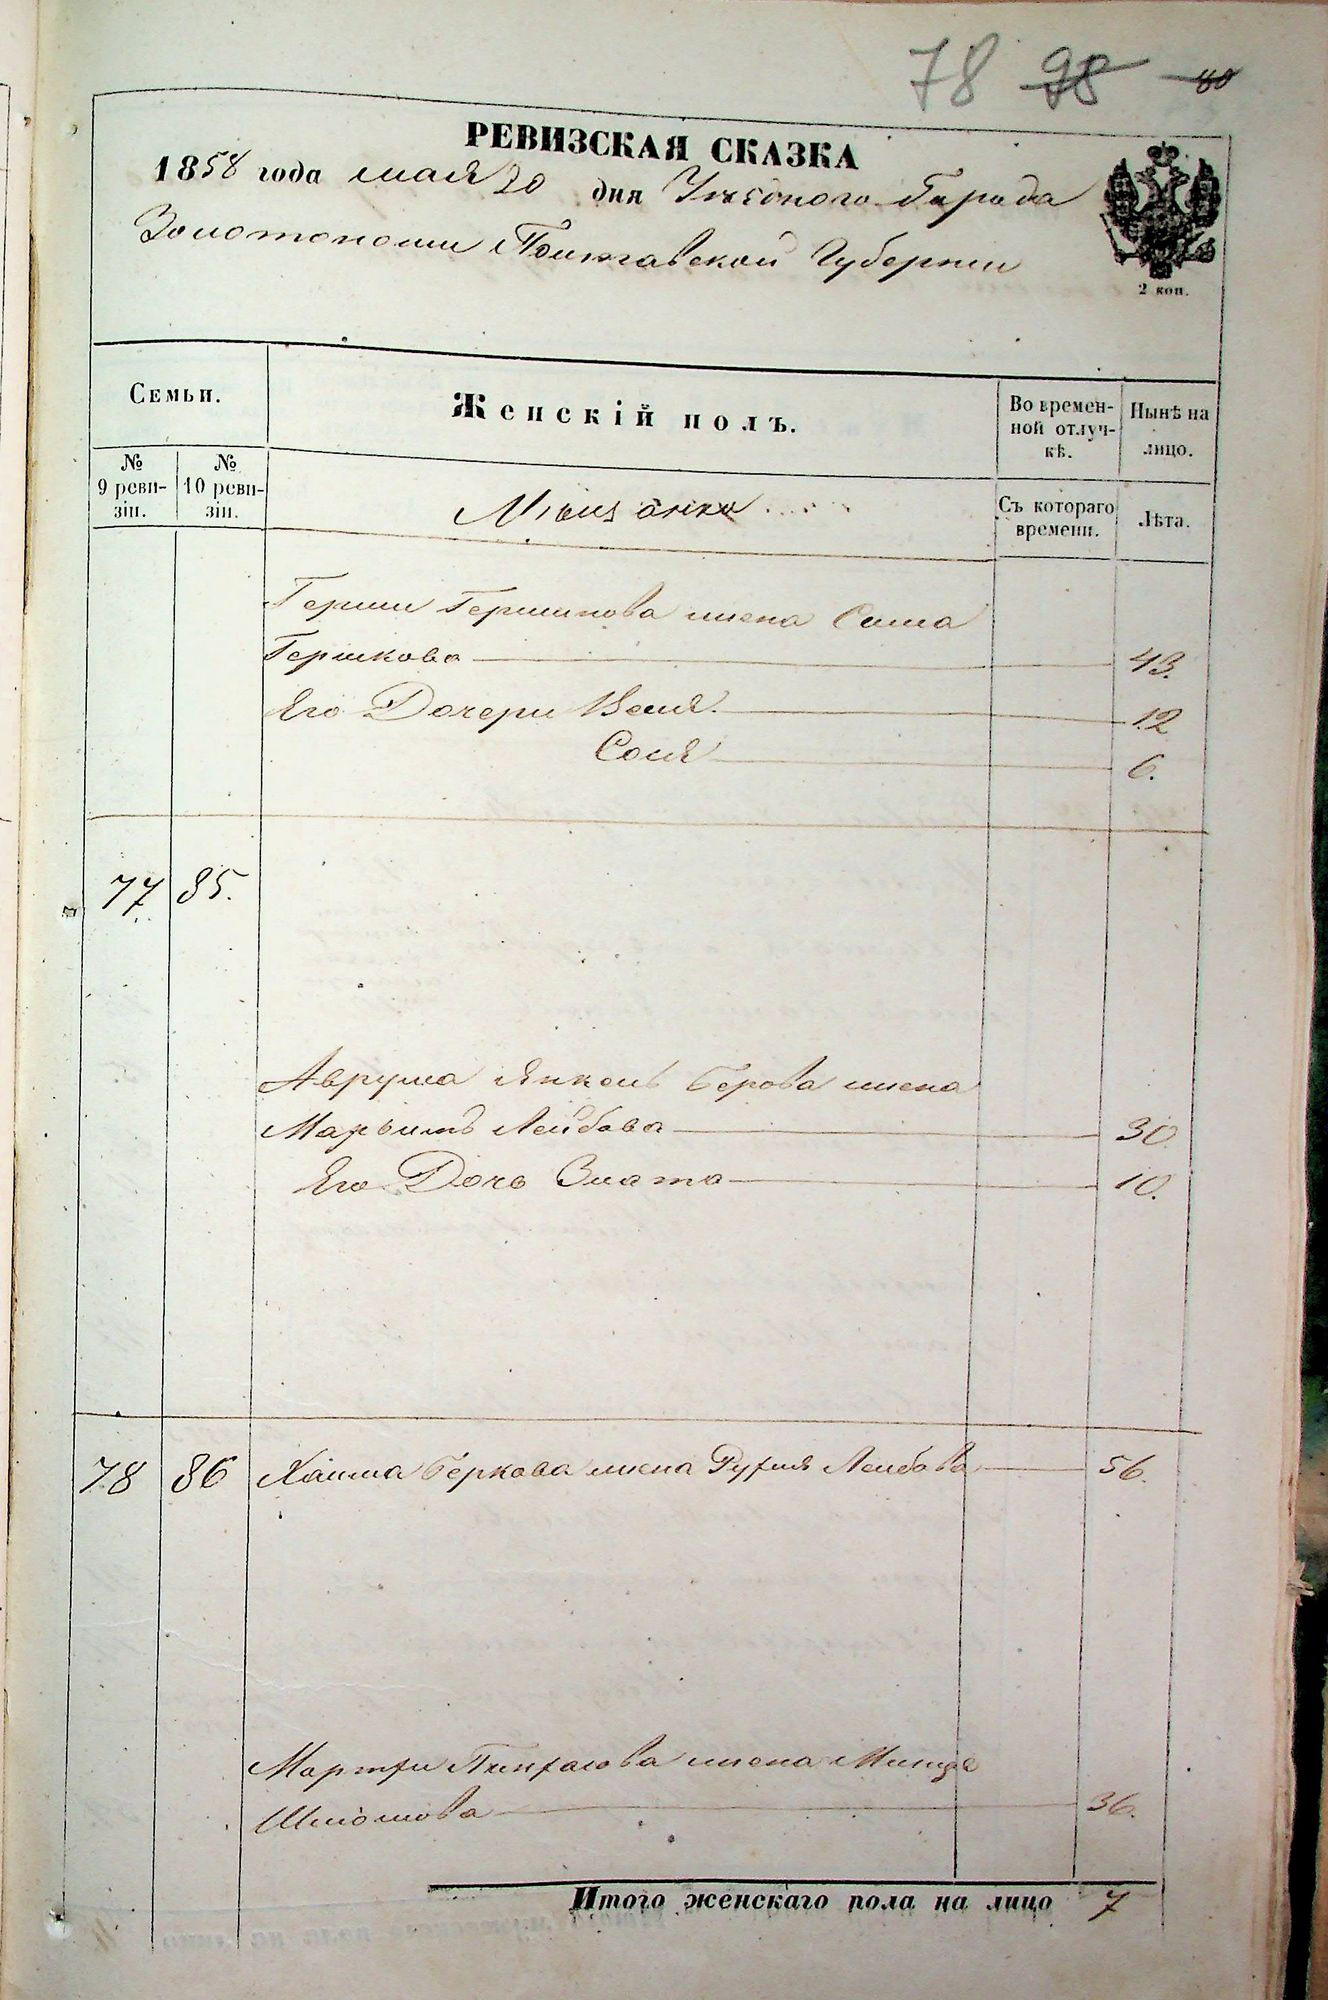 78 98 80
РЕВИЗСКАЯ СКАЗКА
1858 года мая 20 дня Уѣзднаго Города
Золотоноши Полтавской Губерніи
2 коп.
Семьи.
Женскій полъ.
Во времен-
ной отлуч-
кѣ.
Нынѣ на
лицо.
№
9 реви-
зіи.
№
10 реви-
зіи.
Мѣщанки
Съ котораго
времени.
Лѣта.
Герши Гершинова жена Сима
Гершкова 43.
Его Дочери 12
Соня 6.
77 85.
Аврума Янкель Берова жена
Марьимъ Лейбова 30
Его Дочь Злата 10.
78 86 Хаима Беркова жена Рухля Лейбова 56.
Мортхи Пинхасова жена Минце
Шлiомова 36.
Итого женскаго пола на лицо 7